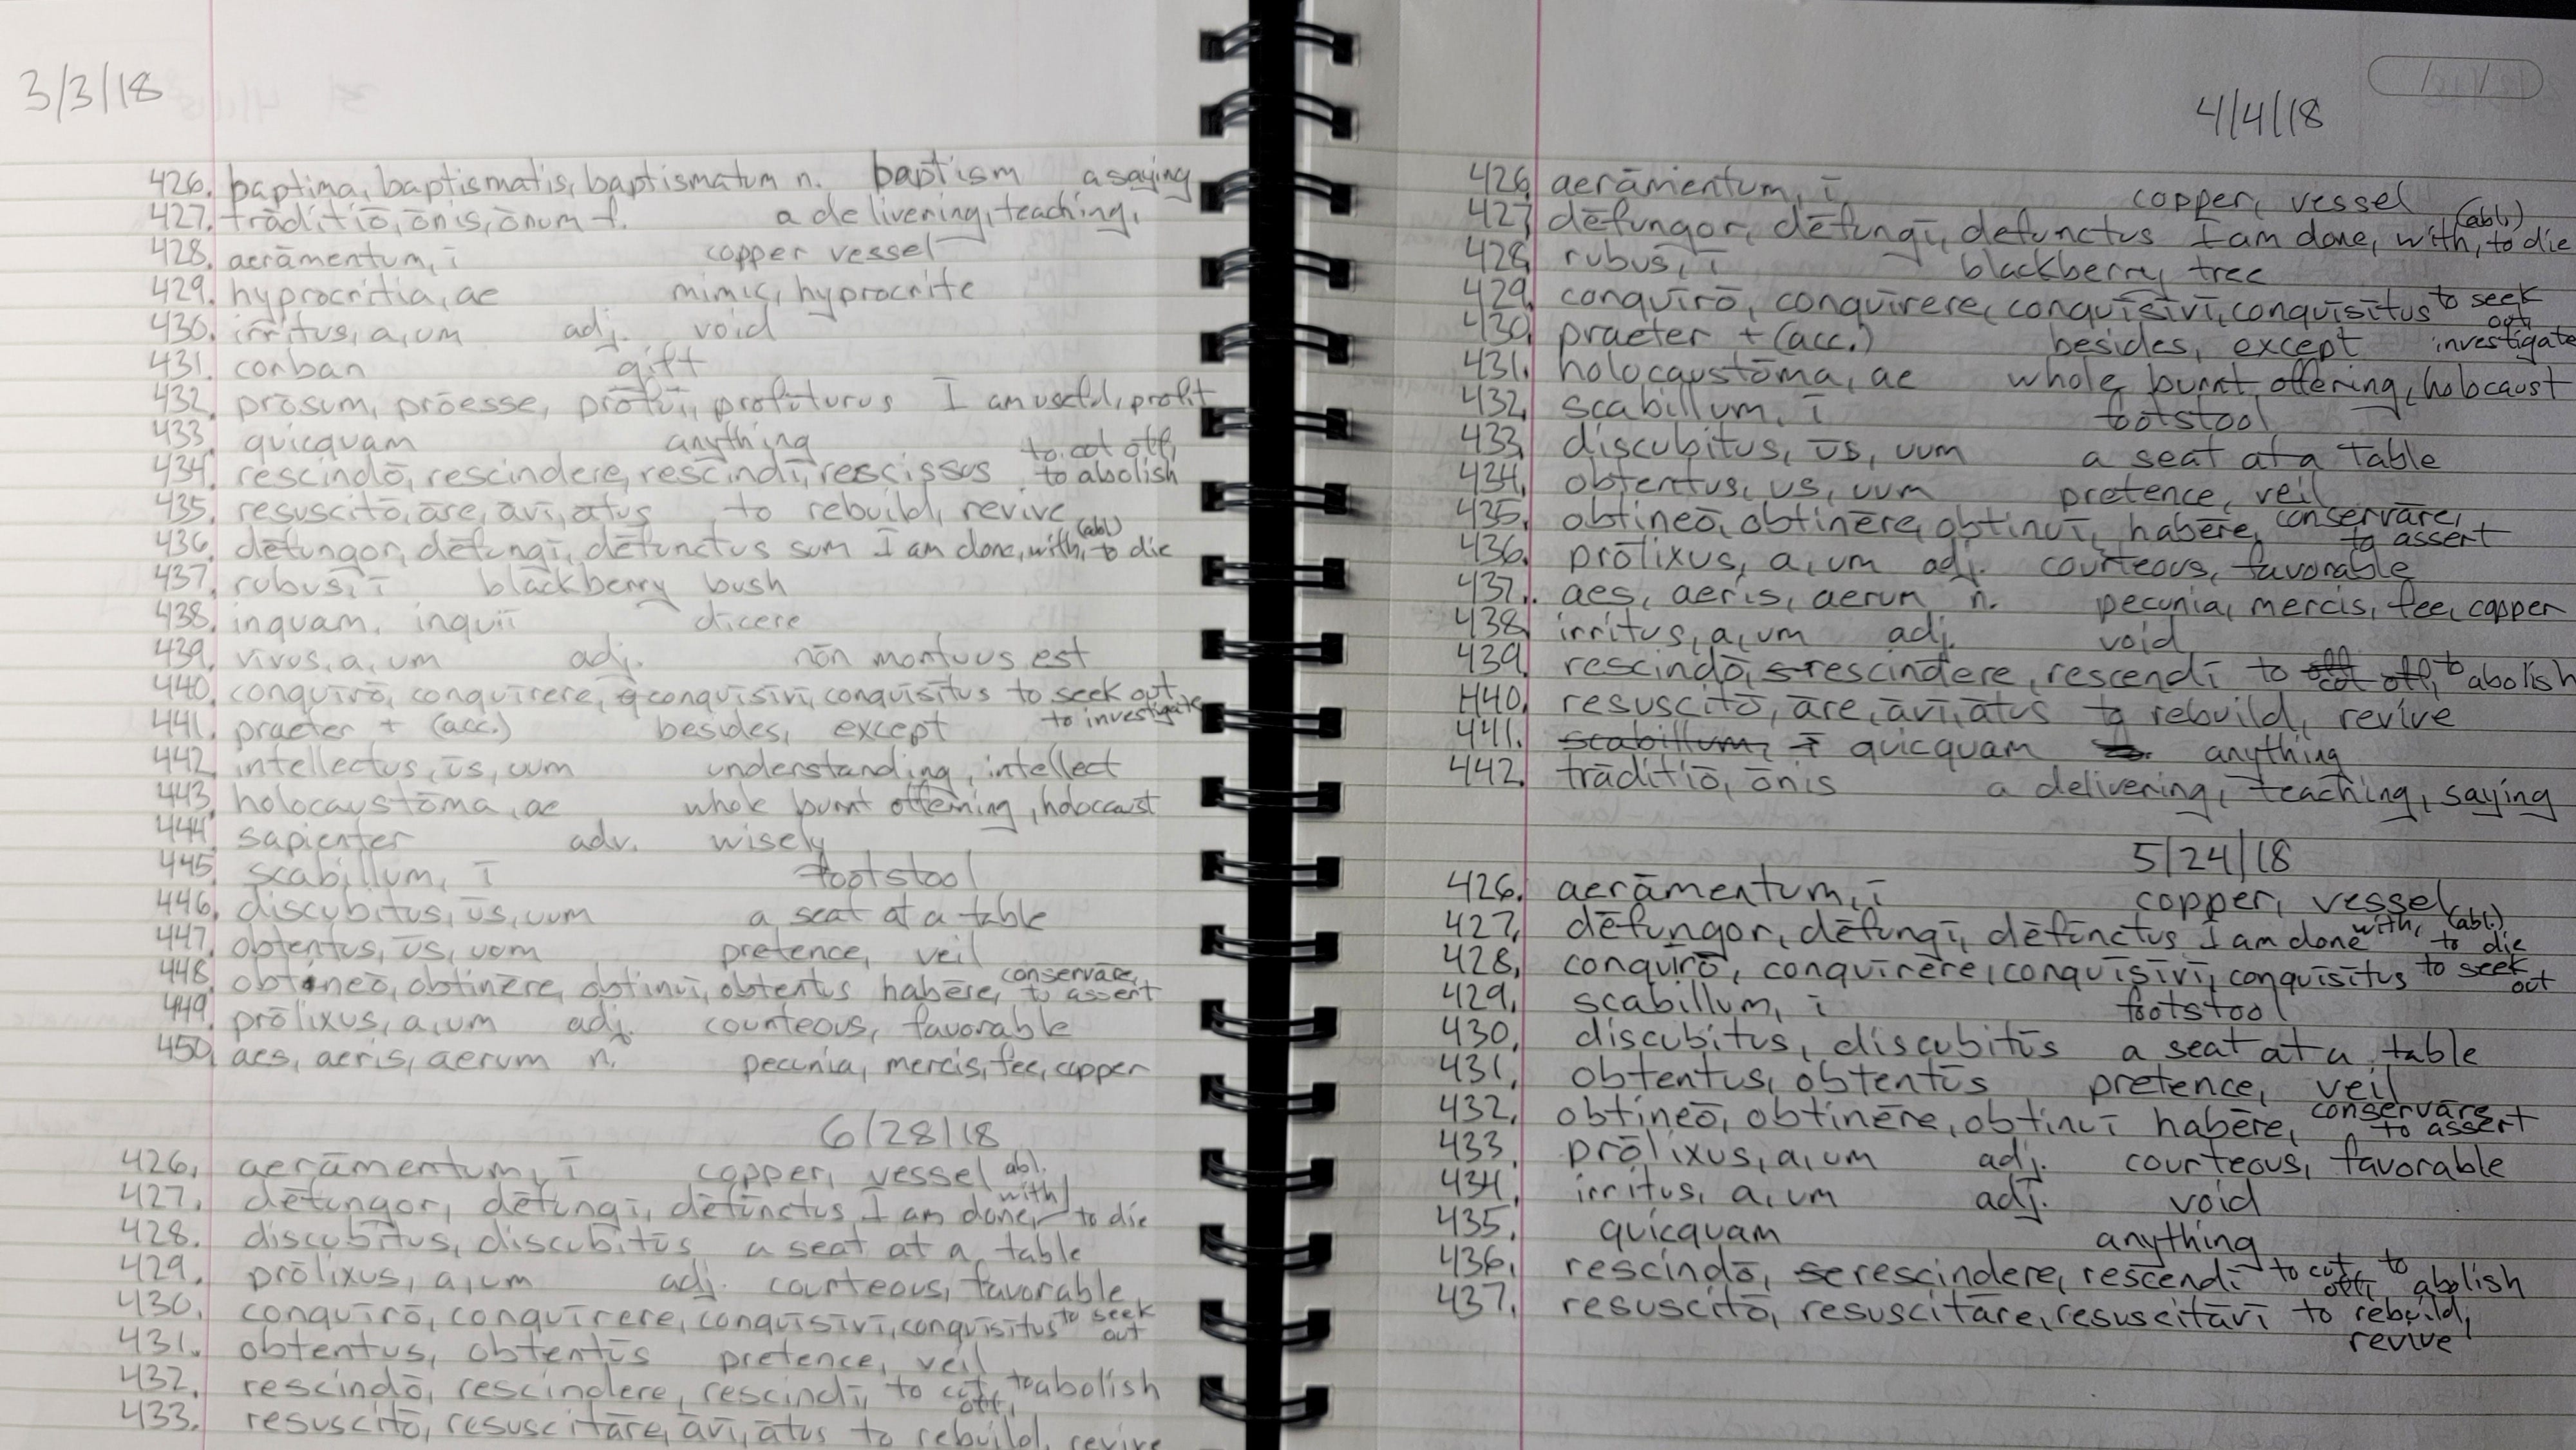 3/3/18
426. baptima, baptismatis, baptismatum n. baptism a saying
427. trāditiō, ōnis, ōnum f. a delivering, teaching,
428. aerāmentum, ī copper vessel
429. hyprocritia, ae mimic, hyprocrite
430. irritus, a, um adj. void
431. conban gift
432. prōsum, prōesse, prōfuī, profuturus I am useful, profit
433. quicquam anything to cut off,
434. rescindō, rescindere, rescindī, rescissus to abolish
435. resuscitō, āre, āvī, ātus to rebuild, revive (abl)
436. dēfungor, dēfungī, dēfunctus sum I am done, with, to die
437. rubus, ī blackberry bush
438. inquam, inquiī dicere
439. vīvus, a, um adj. nōn mortuus est
440. conquīrō, conquīrere, conquīsīvī, conquīsītus to seek out
441. praeter + (acc.) besides, except to investigate
442. intellectus, ūs, uum understanding, intellect
443. holocaustōma, ae whole burnt offering, holocaust
444. sapienter adv. wisely
445. scabillum, ī footstool
446. discubitus, ūs, uum a seat at a table
447. obtentus, ūs, uum pretence, veil
448. obtineō, obtinēre, obtinuī, obtentus habēre, conservāre, to assert
449. prōlixus, a, um adj. courteous, favorable
450. aes, aeris, aerum n. pecunia, mercis, fee, copper
6/28/18
426. aerāmentum, ī copper, vessel abl.
427. dēfungor, dēfungī, dēfunctus I am done, with to die
428. discubitus, discubitūs a seat at a table
429. prōlixus, a, um adj. courteous, favorable
430. conquīrō, conquīrere, conquīsīvī, conquīsītus to seek out
431. obtentus, obtentūs pretence, veil
432. rescindō, rescindere, rescindī, to cut off, to abolish
433. resuscitō, resuscitāre, āvī, ātus to rebuild, revive
4/4/18
426. aerāmentum, ī copper, vessel (abl.)
427. dēfungor, dēfungī, dēfunctus I am done, with, to die
428. rubus, ī blackberry tree
429. conquīrō, conquīrere, conquīsīvī, conquīsītus to seek out,
430. praeter + (acc.) besides, except investigate
431. holocaustōma, ae whole burnt offering, holocaust
432. scabillum, ī footstool
433. discubitus, ūs, uum a seat at a table
434. obtentus, us, uum pretence, veil
435. obtineō, obtinēre, obtinuī, habēre, conservāre, to assert
436. prōlixus, a, um adj. courteous, favorable
437. aes, aeris, aerum n. pecunia, mercis, fee, copper
438. irritus, a, um adj. void
439. rescindō, rescindere, rescendī to cut off, to abolish
440. resuscitō, āre, āvī, ātus to rebuild, revive
441. scabillum, ī quicquam anything
442. trāditiō, ōnis a delivering, teaching, saying
5/24/18
426. aerāmentum, ī copper, vessel
427. dēfungor, dēfungī, dēfunctus I am done with, (abl.) to die
428. conquīrō, conquīrēre, conquīsīvī, conquīsītus to seek out
429. scabillum, ī footstool
430. discubitus, discubitūs a seat at a table
431. obtentus, obtentūs pretence, veil
432. obtineō, obtinēre, obtinuī habēre, conservāre to assert
433. prōlixus, a, um adj. courteous, favorable
434. irritus, a, um adj. void
435. quicquam anything
436. rescindō, rescindere, rescendī to cut off, to abolish
437. resuscitō, resuscitāre, resuscitāvī to rebuild, revive